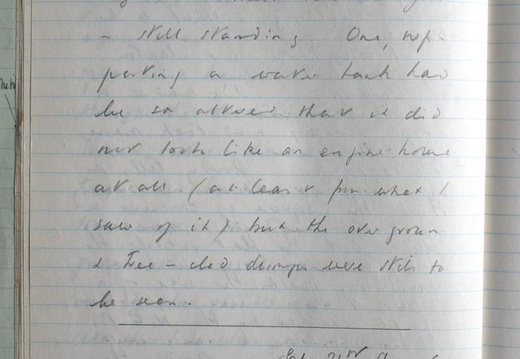 - still standing One, sup-
porting a water tank had
be so altered that it did
not look like an engine house
at all (at least from what I
saw of it) but the overgrown
& tree-clad dumps were still to
be seen.
Sat 21st